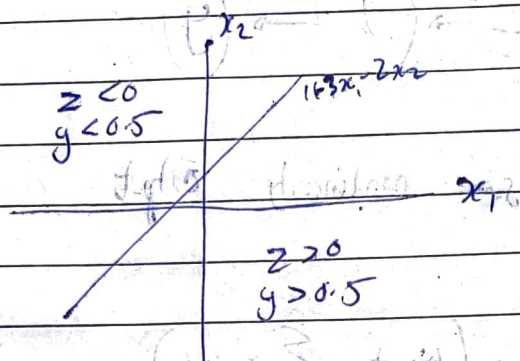 x₂
z < 0
y < 0.5
1+3x₁-2x₂
x₁
z > 0
y > 0.5